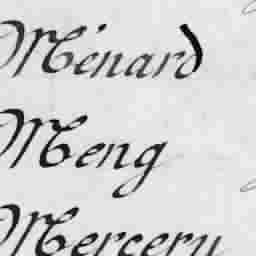 Ménard
Meng
Mercery